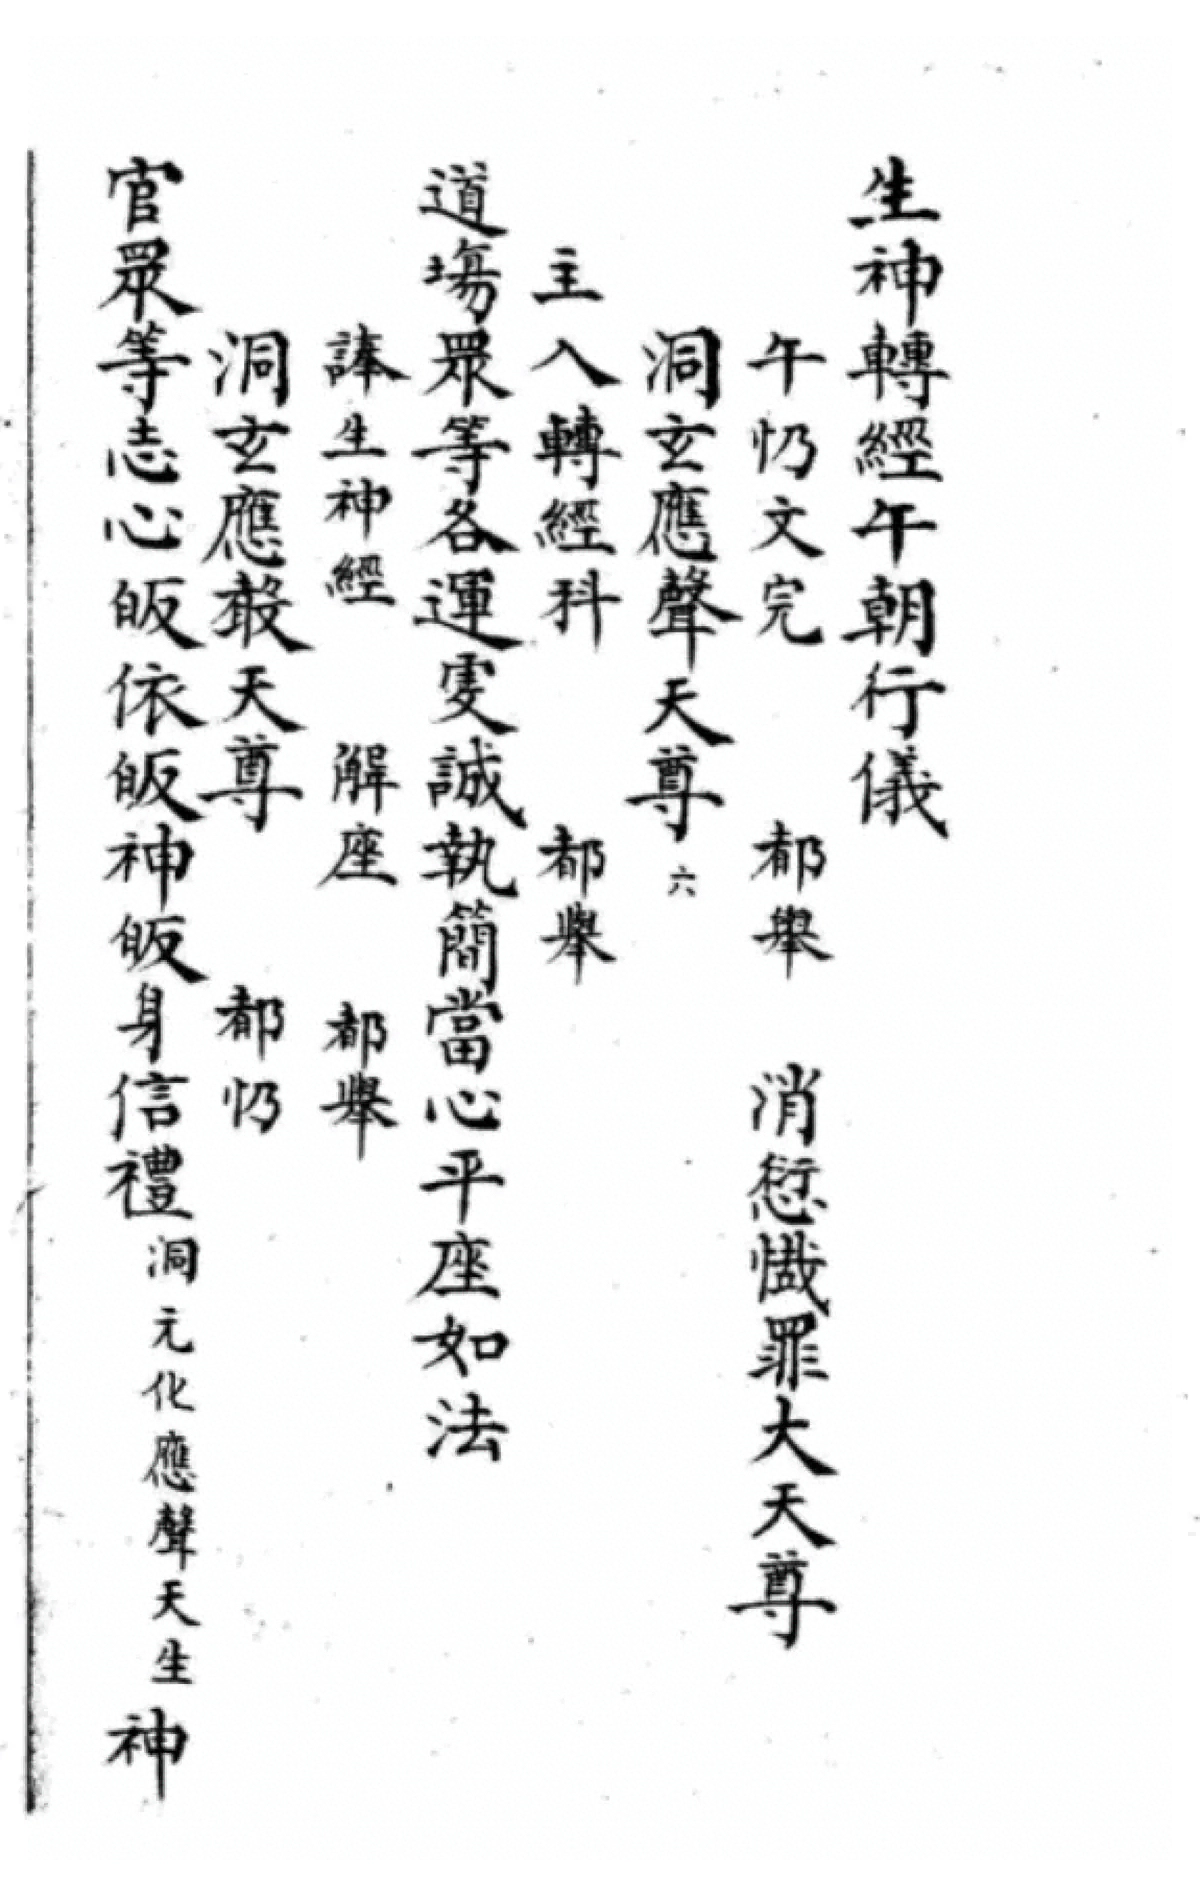 生神轉經午朝行儀
午忉文完　都舉　消愆懺罪大天尊
洞玄應聲天尊六
主入轉經科　都舉
道場眾等各運虔誠執簡當心平座如法
誦生神經　解座　都舉
洞玄應嚴天尊　都忉
官眾等志心皈依皈神皈身信禮洞元化應聲天生神